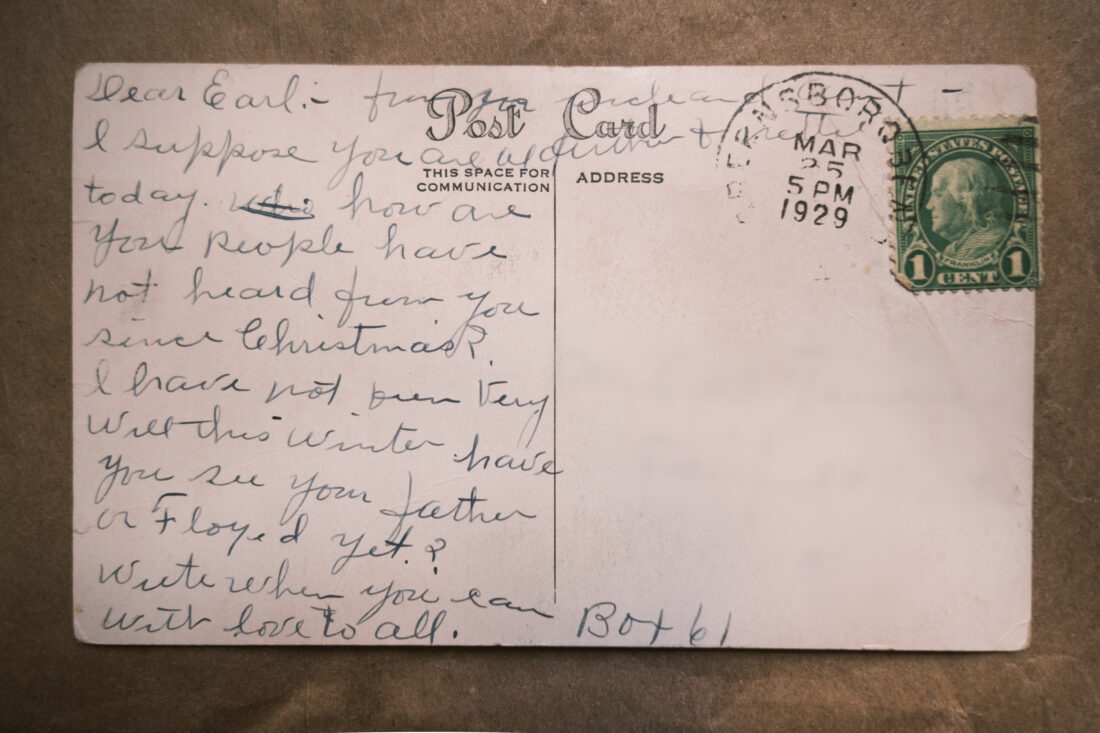 Dear Earl:- from your uncle and
I suppose you are
today. how are
you people have
not heard from you
since Christmas?
I have not been Very
Well this Winter have
you see your father
or Floyed yet?
Write when you can
With love to all.
Post Card
THIS SPACE FOR
COMMUNICATION
ADDRESS
Box 61
MAR
25
5 PM
1929
UNITED STATES POSTAGE
FRANKLIN
1 CENT 1